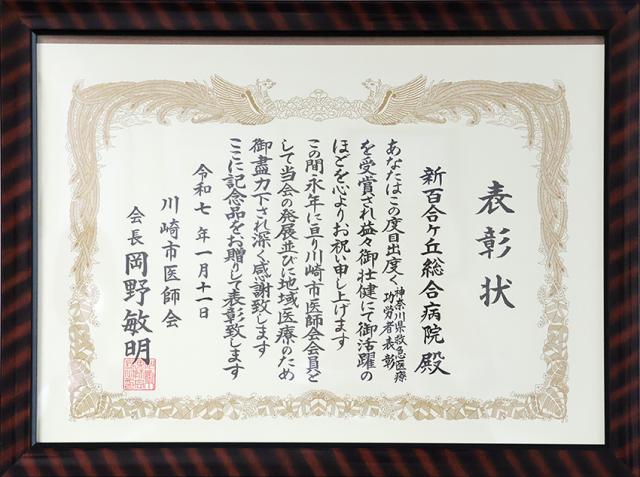 表彰状
新百合ヶ丘総合病院殿
あなたはこの度目出度く神奈川県救急医療功労者表彰
を受賞され益々御壮健にて御活躍の
ほどを心よりお祝い申し上げます
この間永年に亘り川崎市医師会会員と
して当会の発展並びに地域医療のため
御盡力下され深く感謝致します
ここに記念品をお贈りして表彰致します
令和七年一月十一日
川崎市医師会
会長 岡野敏明